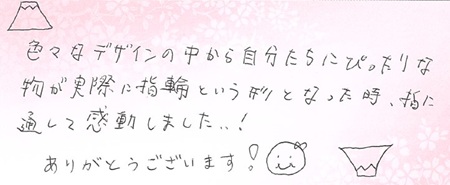 色々なデザインの中から自分たちにぴったりな
物が実際に指輪という形となった時、指に
通して感動しました..!
ありがとうございます!